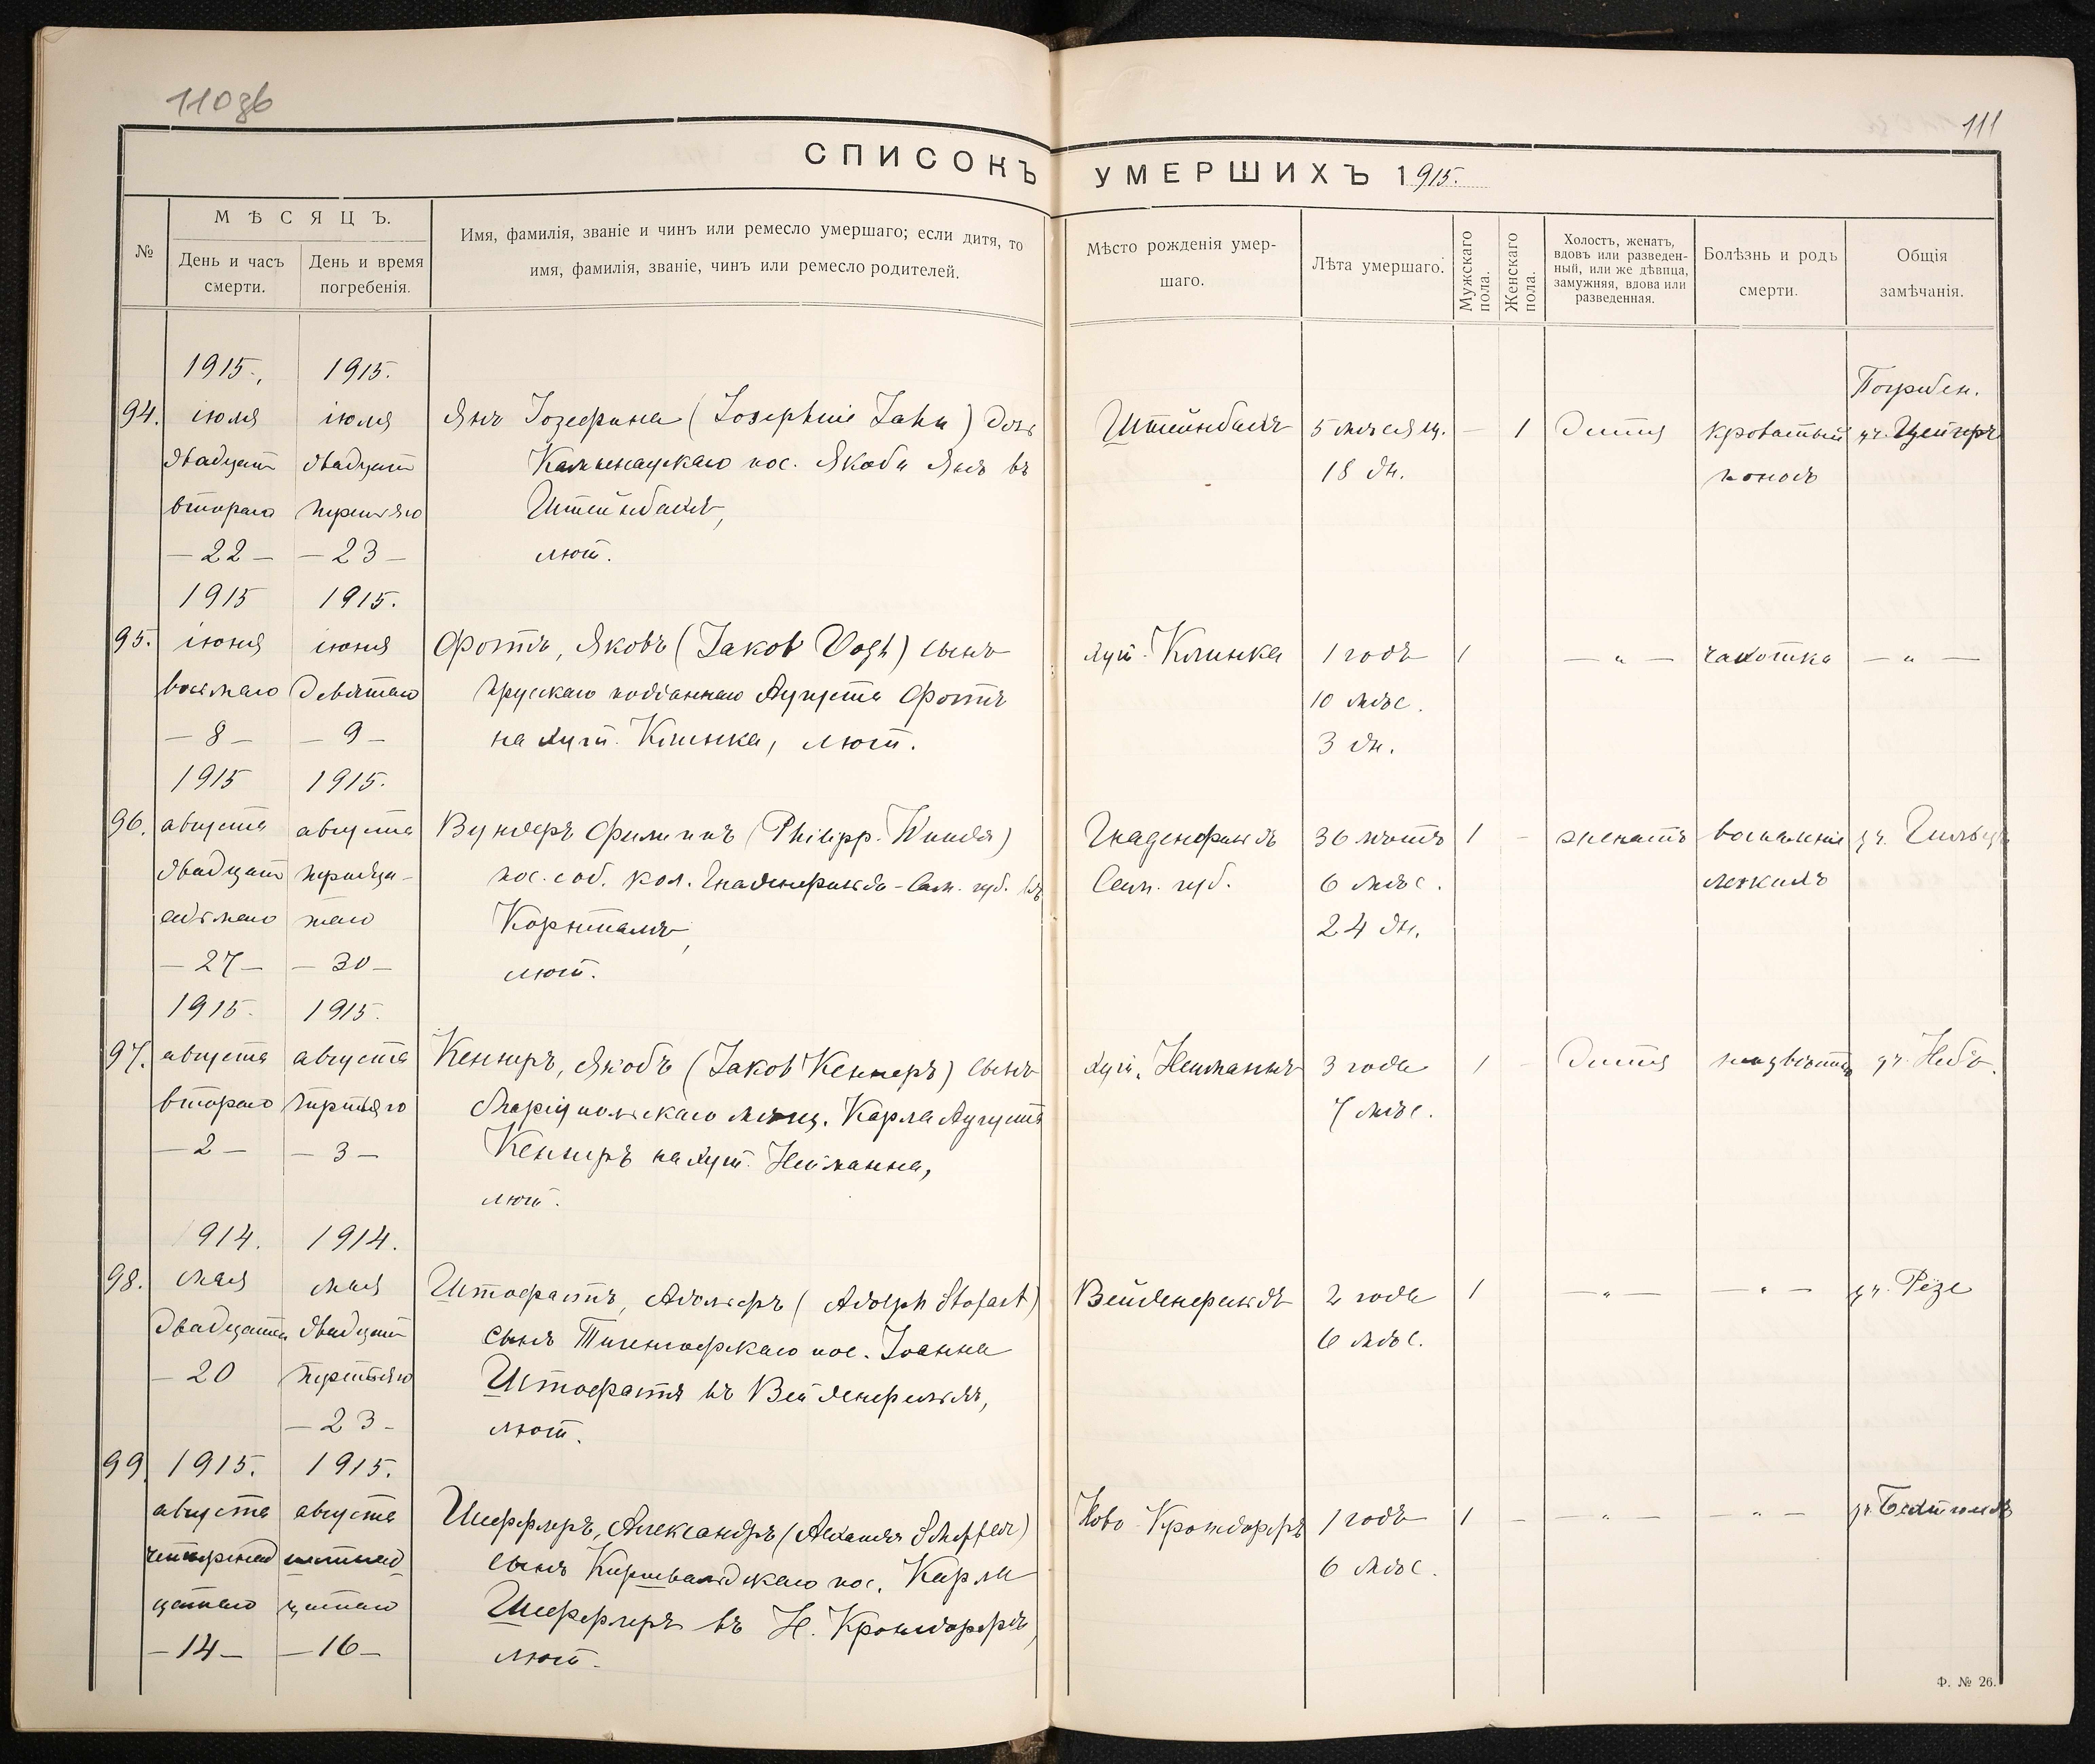 110 зв
111
СПИСОКЪ УМЕРШИХЪ 1915.
№
МѢСЯЦЪ.
День и часъ смерти.
День и время погребенія.
Имя, фамилія, званіе и чинъ или ремесло умершаго; если дитя, то
имя, фамилія, званіе, чинъ или ремесло родителей.
Мѣсто рожденія умер-
шаго.
Лѣта умершаго.
Мужскаго пола.
Женскаго пола.
Холостъ, женатъ,
вдовъ или разведен-
ный, или же дѣвица,
замужняя, вдова или
разведенная.
Болѣзнь и родъ
смерти.
Общія
замѣчанія.
1915. 1915.
Погребен.
94. іюля іюля Янъ Іозефина (Josephine Jahn) дочь Штейнбахъ 5 мѣсяц. — 1 Дитя кровавый
двадцать двадцать пос. Якоби Янъ въ 18 дн. поносъ
второго третьяго Штейнбахѣ,
— 22 — — 23 — лют.
1915 1915.
95. іюня іюня Фоттъ, Яковъ (Jakob Vogt) сынъ хут. Клинка 1 годъ 1 — „ — чахотка — „ —
восьмаго девятаго прускаго подданнаго Аугуста Фоттъ 10 мѣс.
— 8 — — 9 — на хут. Клинка, лют. 3 дн.
1915 1915.
96. августа августа Вундеръ Филиппъ (Philipp Wunder) Гнаденфлюръ 36 лѣтъ 1 - женатъ воспаленіе
двадцать тридца- пос. соб. кол. Сам. губ. въ Сам. губ. 6 мѣс. легкихъ
седьмаго таго Корнталѣ, 24 дн.
— 27 — — 30 — лют.
1915. 1915.
97. августа августа Кеннеръ, Якобъ (Jakob Кеннеръ) сынъ хут. Нейманнъ 3 года 1 - Дитя неизвѣстно
второго третьяго Маріупольскаго мѣщ. Карла Аугуста 7 мѣс.
— 2 — — 3 — Кеннеръ на хут. Нейманна,
лют.
1914. 1914.
98. мая мая Штофастъ, Адольфъ (Adolph Stofast) Вейденфельдъ 2 года 1 — „ — — „ — уч. Резе
двадцатаго двадцать сынъ Тигенгофскаго пос. Іоанна 6 мѣс.
— 20 третьяго Штофастъ въ Вейденфельдѣ,
— 23 - лют.
99. 1915. 1915.
августа августа Шефлеръ, Александръ (Alexander Scheffler) Ново-Кронсдорфъ 1 годъ 1 - — „ — — „ —
четырнад шестнад сынъ Киршвальдскаго пос. Карла 6 мѣс.
цатаго цатаго Шефлеръ въ Н. Кронсдорфѣ,
— 14 — — 16 — лют.
Ф. № 26.